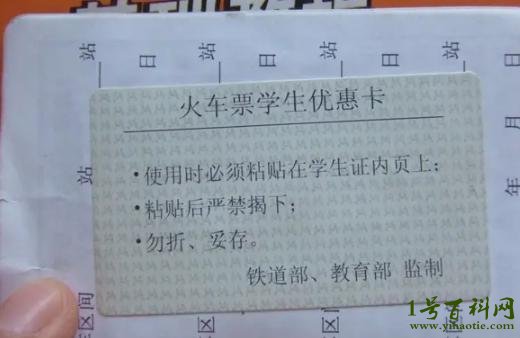 站 日 站 日 站 日
火车票学生优惠卡
·使用时必须粘贴在学生证内页上;
·粘贴后严禁揭下;
·勿折、妥存。
铁道部、教育部 监制
站
月
年
区间
区
区
区
1号百科网
www.yihaotie.com